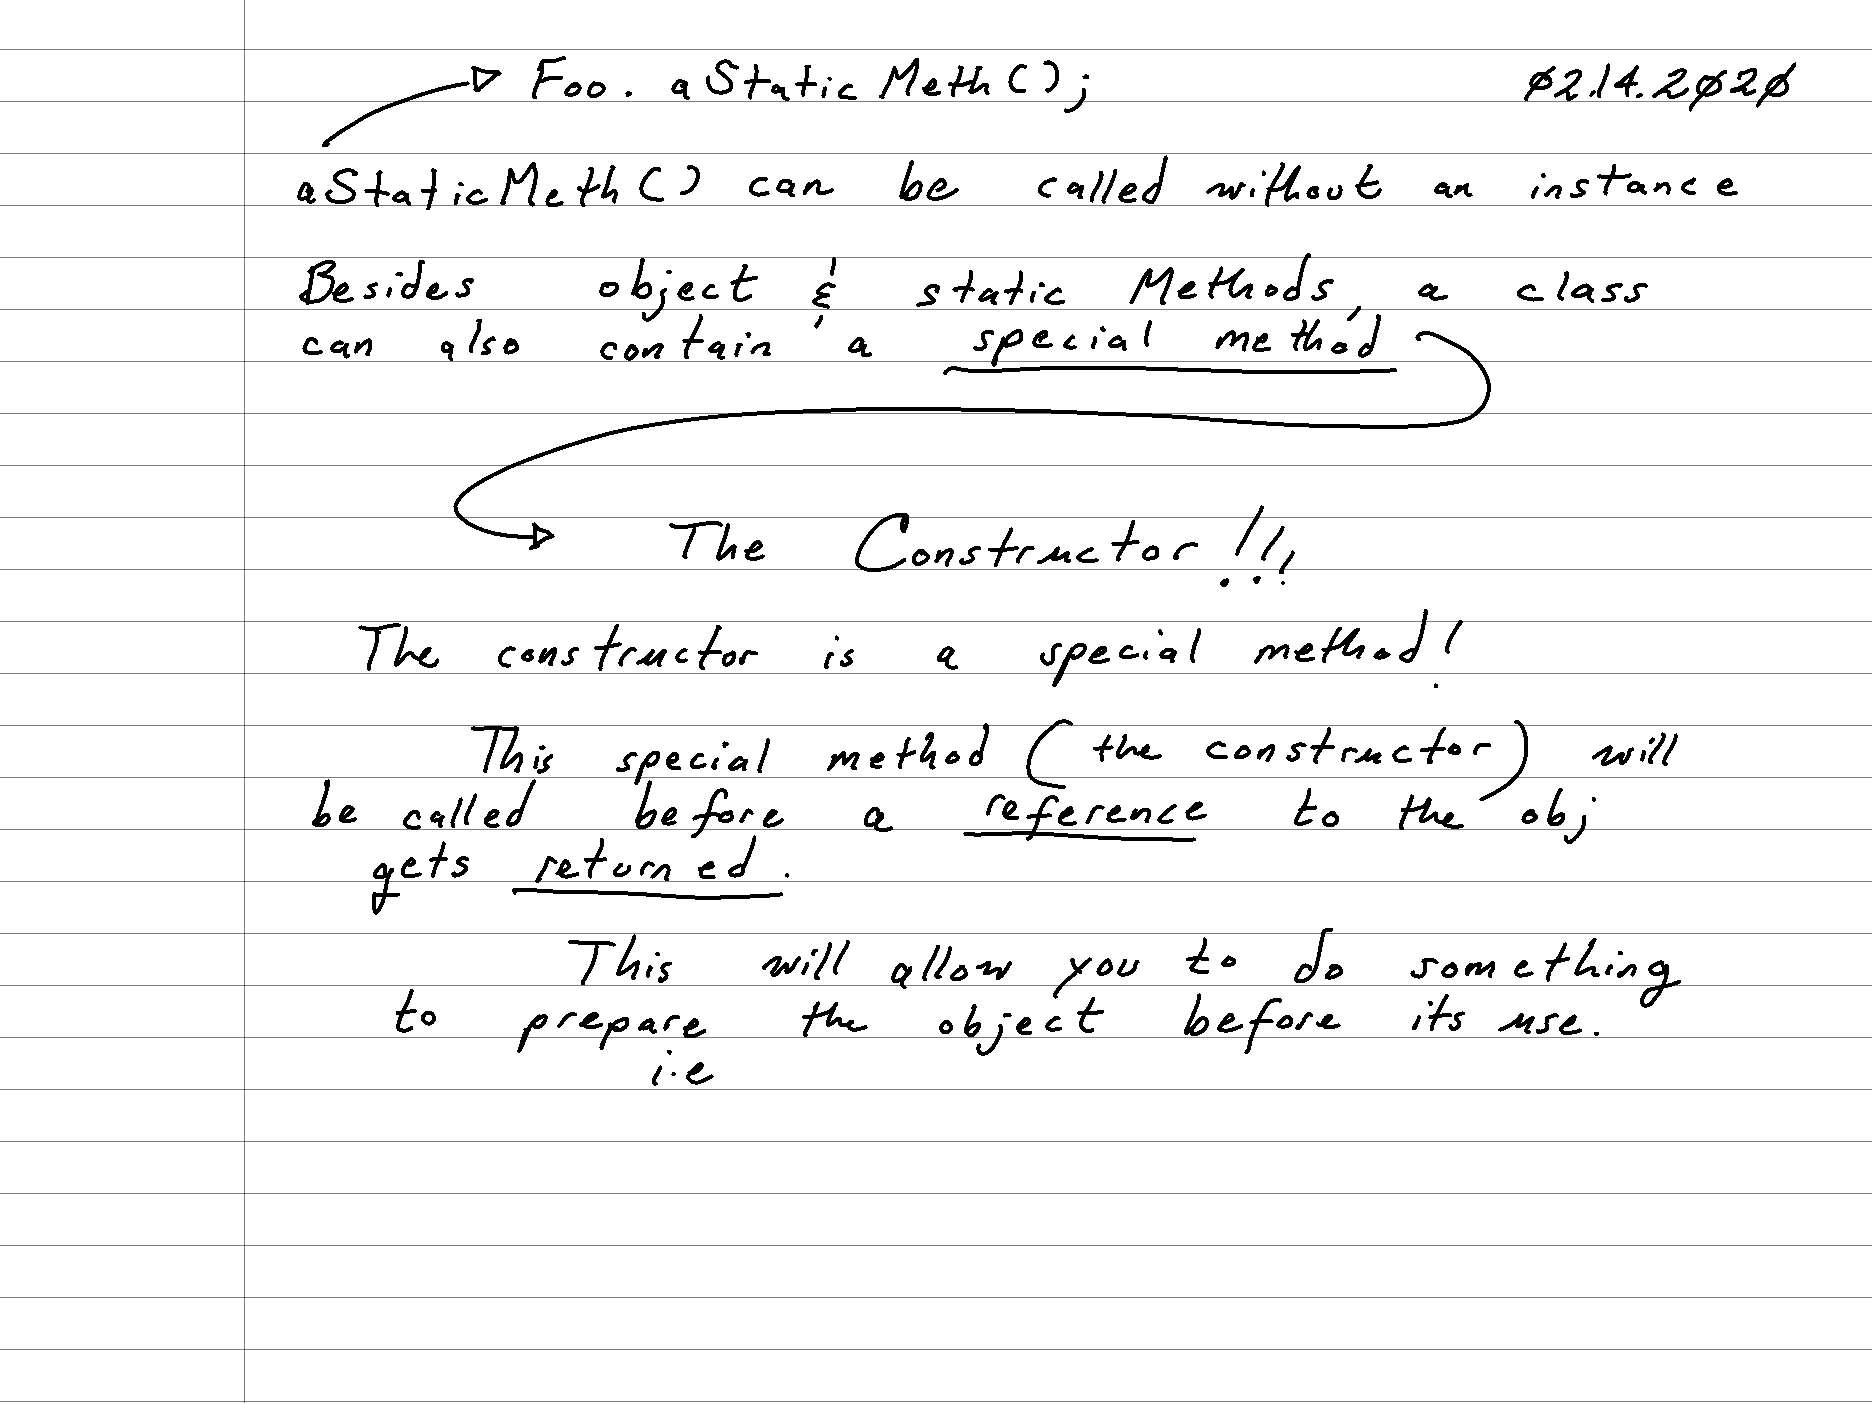 Foo. aStaticMeth(); 02.14.2020
aStaticMeth() can be called without an instance
Besides object & static Methods, a class
can also contain a special method
The Constructor!!!
The constructor is a special method!
This special method (the constructor) will
be called before a reference to the obj
gets returned.
This will allow you to do something
to prepare the object before its use.
i.e